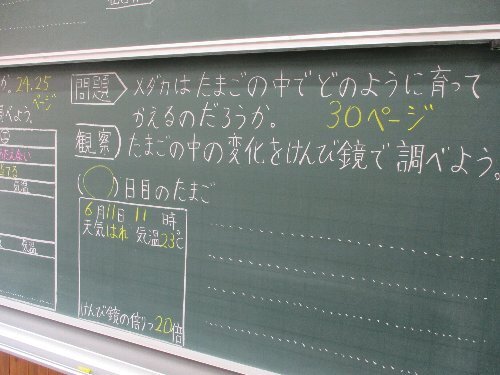 24.25
ページ
べよう。
気温
気温
問題 メダカはたまごの中でどのように育って
かえるのだろうか。 30ページ
観察 たまごの中の変化をけんび鏡で調べよう。
( )日目のたまご
6月11日 11時
天気はれ 気温23℃
けんび鏡の倍りつ20倍